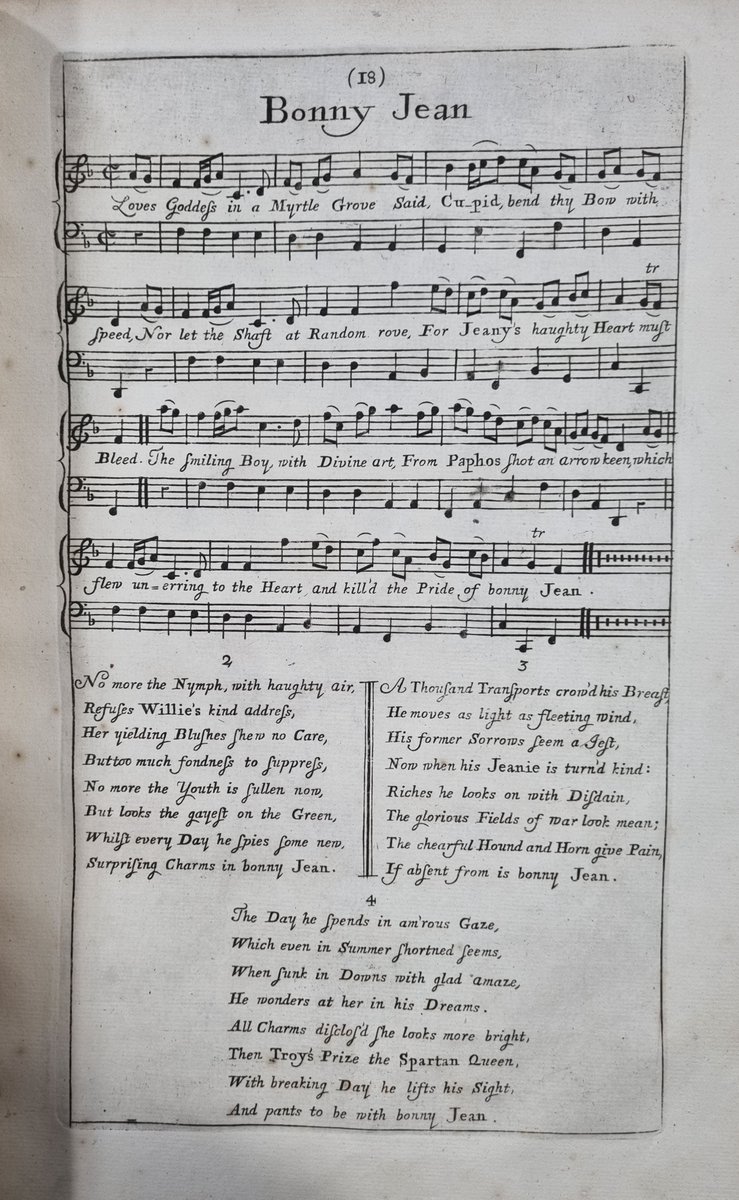 (18)
Bonny Jean
Loves Goddeſs in a Myrtle Grove Said, Cu_pid, bend thy Bow with
ſpeed, Nor let the Shaft at Random rove, For Jeany's haughty Heart muſt
tr
Bleed. The ſmiling Boy, with Divine art, From Paphos ſhot an arrow keen, which
flew un=erring to the Heart, and kill'd the Pride of bonny Jean.
tr
2
No more the Nymph, with haughty air,
Refuſes Willie's kind addreſs,
Her yielding Bluſhes ſhew no Care,
But too much fondneſs to ſuppreſs,
No more the Youth is ſullen now,
But looks the gayeſt on the Green,
Whilſt every Day he ſpies ſome new,
Surpriſing Charms in bonny Jean.
3
A Thouſand Tranſports crow'd his Breaſt,
He moves as light as fleeting wind,
His former Sorrows ſeem a Jeſt,
Now when his Jeanie is turn'd kind:
Riches he looks on with Diſdain,
The glorious Fields of war look mean;
The chearful Hound and Horn give Pain,
If abſent from is bonny Jean.
4
The Day he ſpends in am'rous Gaze,
Which even in Summer ſhortned ſeems,
When ſunk in Downs with glad amaze,
He wonders at her in his Dreams.
All Charms diſclos'd ſhe looks more bright,
Then Troy's Prize the Spartan Queen,
With breaking Day he lifts his Sight,
And pants to be with bonny Jean.